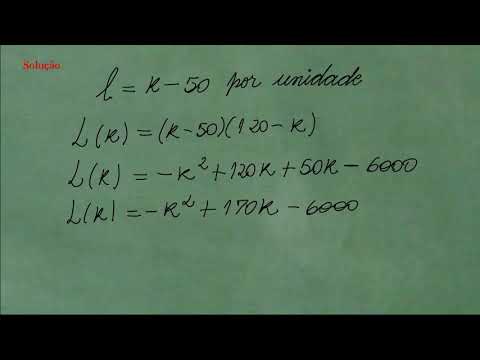 Solução
l = x - 50 por unidade
L(x) = (x-50)(120-x)
L(x) = -x² + 120x + 50x - 6000
L(x) = -x² + 170x - 6000